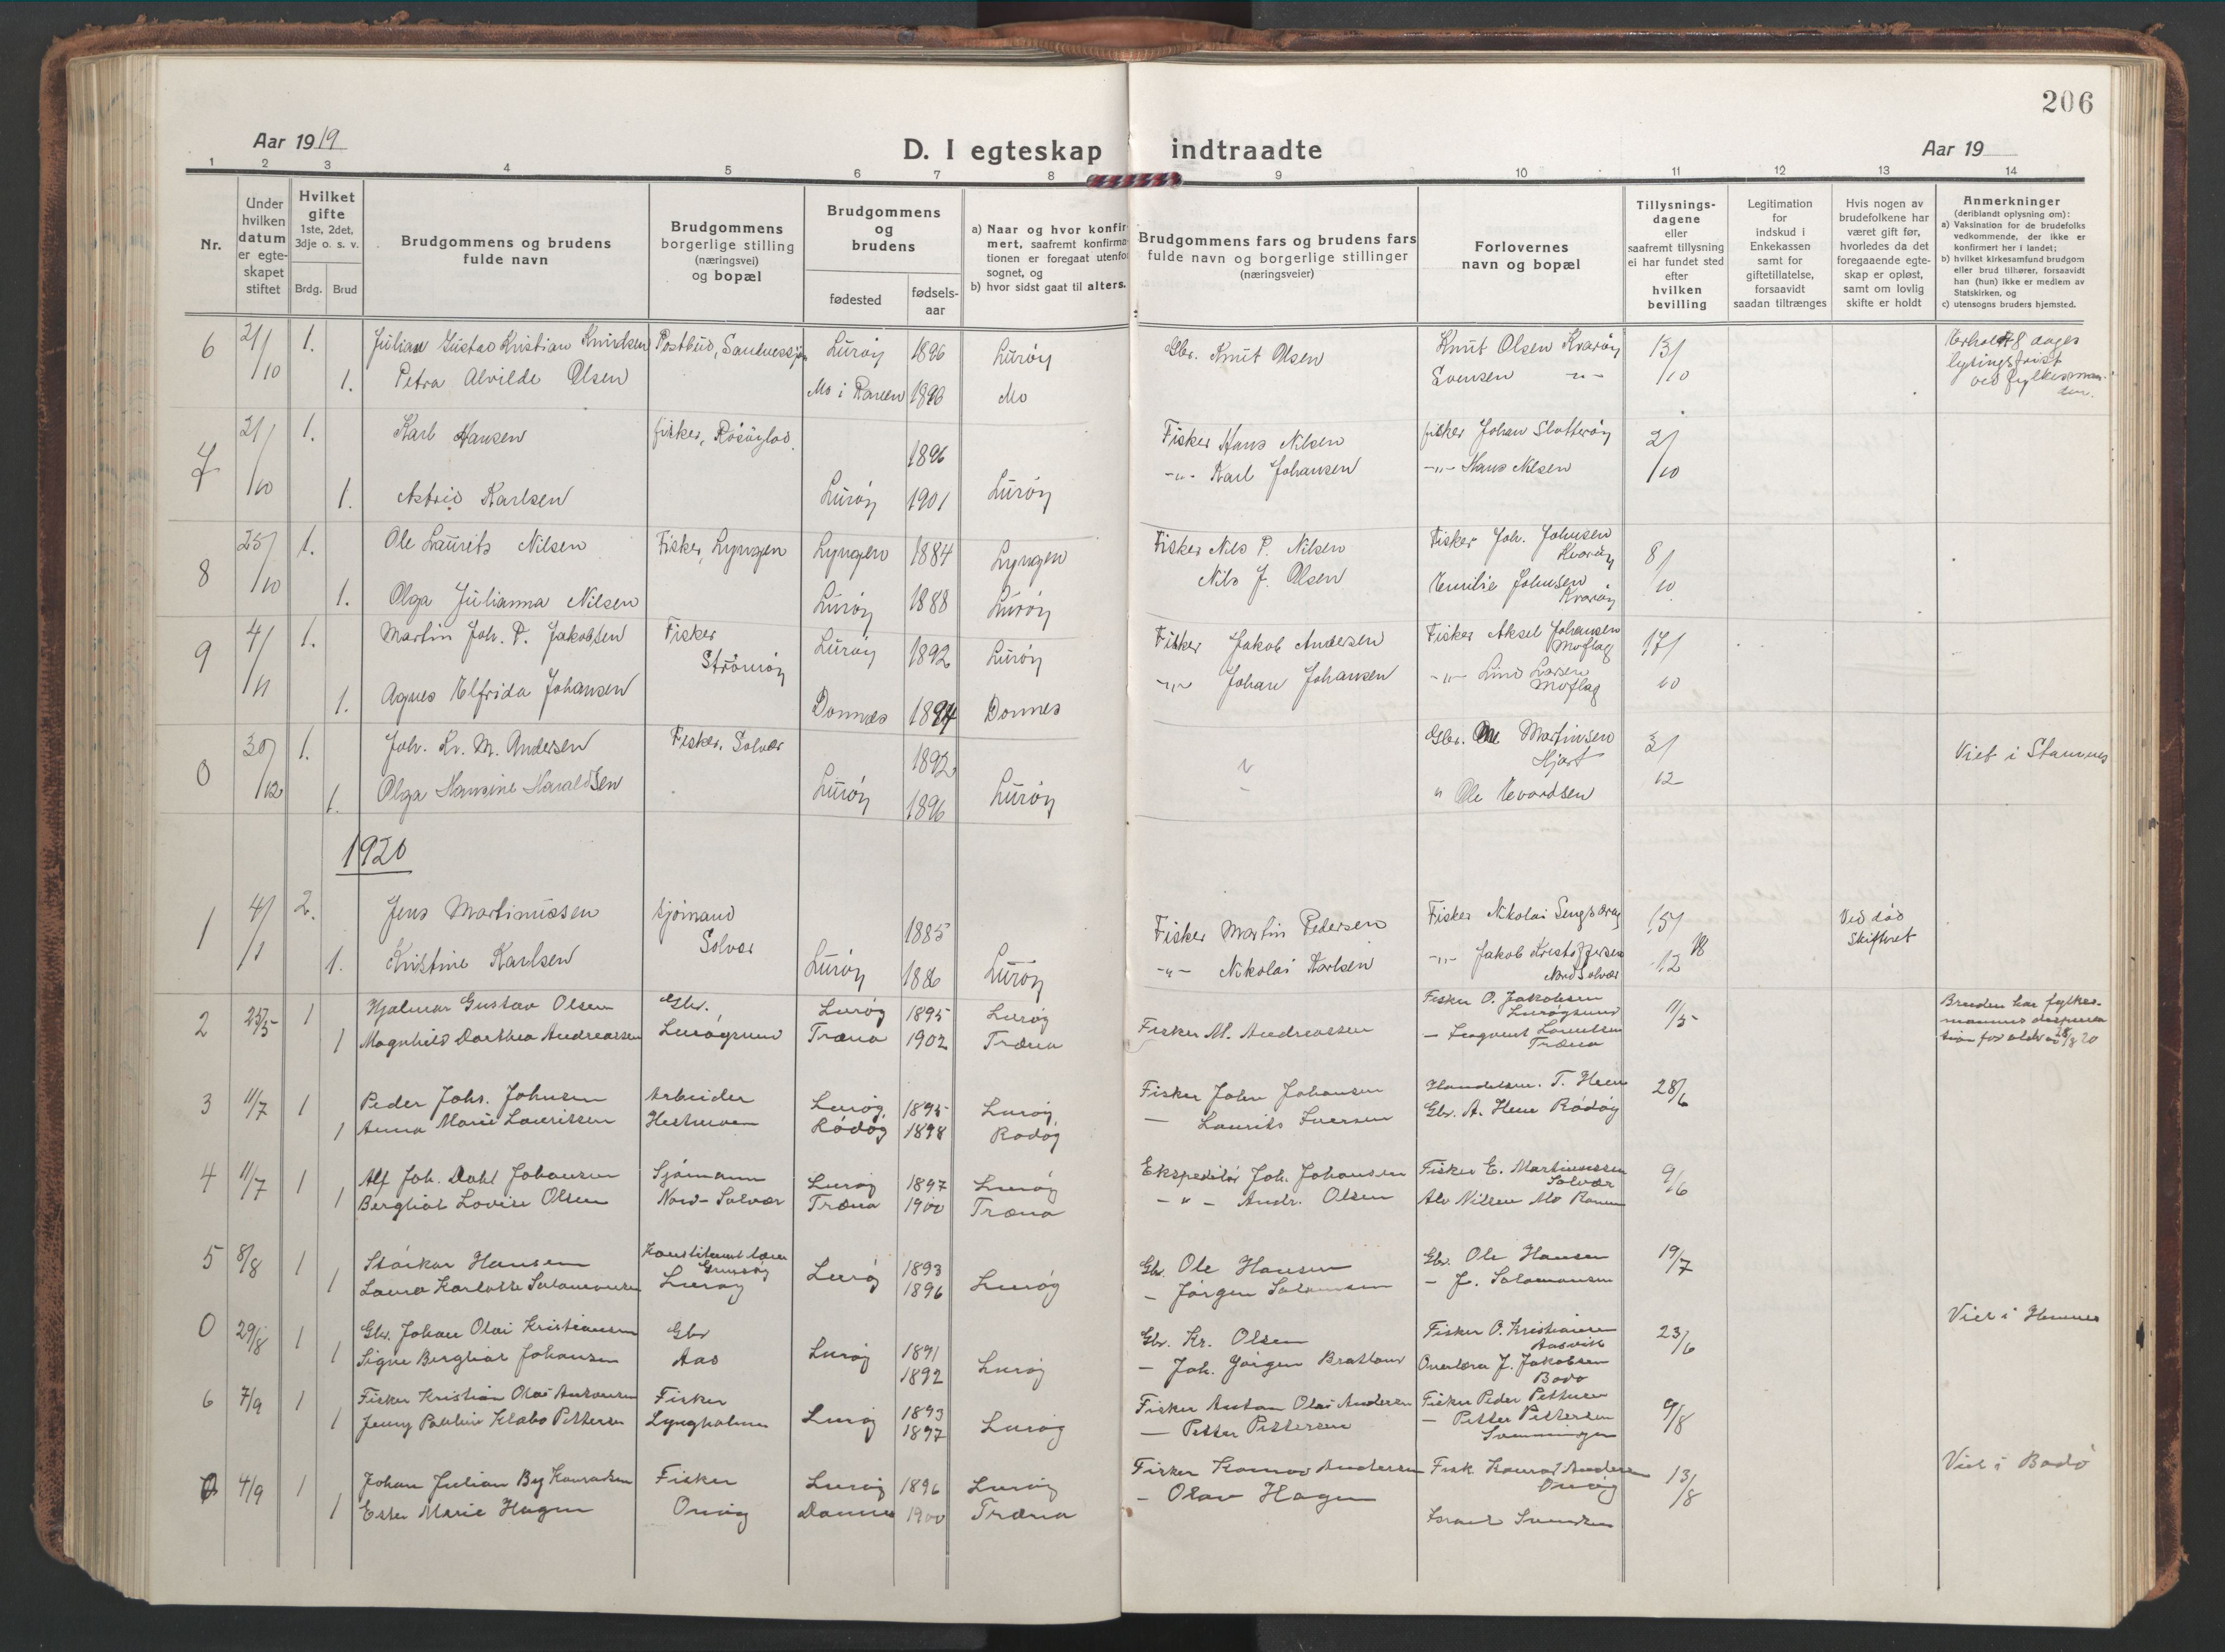 206
Aar 1919
D. I egteskap indtraadte
Aar 19
1 2 3 4 5 6 7 8 9 10 11 12 13 14
Nr.
Under hvilken datum er egte-skapet stiftet
Hvilket gifte
1ste, 2det, 3dje o. s. v.
Brdg. Brud
Brudgommens og brudens fulde navn
Brudgommens borgerlige stilling (næringsvei) og bopæl
Brudgommens og brudens
fødested
fødsels-aar
a) Naar og hvor konfir-mert, saafremt konfirma-tionen er foregaat utenfo sognet, og
b) hvor sidst gaat til alters.
Brudgommens fars og brudens fars fulde navn og borgerlige stillinger (næringsveier)
Forlovernes navn og bopæl
Tillysnings-dagene eller saafremt tillysning ei har fundet sted efter hvilken bevilling
Legitimation for indskud i Enkekassen samt for giftetillatelse, forsaavidt saadan tiltrænges
Hvis nogen av brudefolkene har været gift før, hvorledes da det foregaaende egte-skap er opløst, samt om lovlig skifte er holdt
Anmerkninger
(deriblandt oplysning om):
a) Vaksination for de brudefolks vedkommende, der ikke er konfirmert her i landet;
b) hvilket kirkesamfund brudgom eller brud tilhører, forsaavidt han (hun) ikke er medlem av Statskirken, og
c) utensogns bruders hjemsted.
6 21/10 1. Julian Gustav Kristian Knudsen Postbud, Sandnessjøen Lurøy 1896 Lurøy Gbr. Knut Olsen Knut Olsen Kvarøy 13/10 8 dages
1. Petra Alvilde Olsen Mo i Ranen Mo Svensen -"- lysingsfrist
ved fylkesman-
den.
7 21/10 1. Karl Hansen fisker, 1896 Fisker Hans Nilsen fisker Johan Slotterøy 2/10
1. Astrid Karlsen Lurøy 1901 Lurøy -"- Karl Johansen -"- Hans Nilsen
8 25/10 1. Ole Laurits Nilsen Fisker, Lyngen Lyngen 1884 Lyngen Fisker Nils P. Nilsen Fisker Joh. Johnsen Kvarøy 8/10
1. Olga Julianna Nilsen Lurøy 1888 Lurøy Nils J. Olsen Emilie Johnsen Kvarøy
9 4/11 1. Martin Joh. P. Jakobsen Fisker Strömöy Lurøy 1892 Lurøy Fisker Jakob Andersen Fisker Aksel Johansen Moflag 17/10
1. Agnes Elfrida Johansen Dønnes 1894 Dønnes -"- Johan Johansen -"- Lind Larsen Moflag
0 30/12 1. Joh. Kr. M. Andersen Fisker, Solvær 1892 Gbr. Ole Martinsen Hjart 3/12 Viet i Stamnes
1. Olga Hansine Haraldsen Lurøy 1896 Lurøy " Ole Evardsen
1920
1 4/1 2. Jens Martinussen sjömand Solvær 1885 Fisker Martin Pedersen Fisker Nikolai 15/12 Ved död
1. Kristine Karlsen Lurøy 1886 Lurøy -"- Nikolai Karlsen -"- Jakob Kristoffersen Nord Solvær Skifteret
2 25/5 1 Hjalmar Gustav Olsen Gbr. Lurøy 1895 Lurøy Fisker O. Jakobsen Lurøysund 11/5 Bruden har fylkes-
1 Magnhild Dorthea Andreassen Lurøysund Træna 1902 Træna Fisker M. Andreassen Træna mannens dispensa
tion for alder
3 11/7 1 Peder Johs. Johnsen Arbeider Lurøy 1895 Lurøy Fisker John Johansen Handelsm. T. Heen 28/6
1 Anna Marie Lauritsen Hestmoen Rödöy 1898 Rödöy — Laurits Iversen Gbr. A. Heen Rödöy
4 11/7 1 Alf Joh. Dahl Johansen Sjömann Lurøy 1897 Lurøy Ekspeditör Joh. Johansen Fisker E. Martinussen Solvær 9/6
1 Bergliot Lovise Olsen Nord-Solvær Træna 1900 Træna -"- Andr. Olsen Alv Nilsen Mo Ranen
5 8/8 1 Störkar Hansen Lurøy Lurøy 1893 Lurøy Gbr. Ole Hansen Gbr. Ole Hansen 19/7
1 Laura Karlotte Salamonsen 1896 — Jörgen Salamonsen — J. Salamonsen
0 29/8 1 Gbr. Johan Olai Kristiansen Gbr Lurøy 1891 Lurøy Gbr. Kr. Olsen Fisker O. Kristiansen Aasvik 23/6 Viet i Hemnes
1 Signe Bergliot Johansen Aas 1892 — Joh. Jörgen Bratland J. Jakobsen Bodö
6 7/9 1 Fisker Kristian Olai Antonsen Fisker Lurøy 1893 Lurøy Fisker Anton Olai Andersen Fisker Peder Pettersen 9/8
1 Jenny Pauline Klabo Pettersen Lyngholmen 1897 — Petter Pettersen — Petter Pettersen
0 4/9 1 Johan Julian By Konradsen Fisker Lurøy 1896 Lurøy Fisker Konrad Andersen Fisk. Konrad Andersen Onöy 13/8 Viet i Bodö
1 Ester Marie Hagen Onöy Dønnes 1900 Træna — Olav Hagen Svendsen